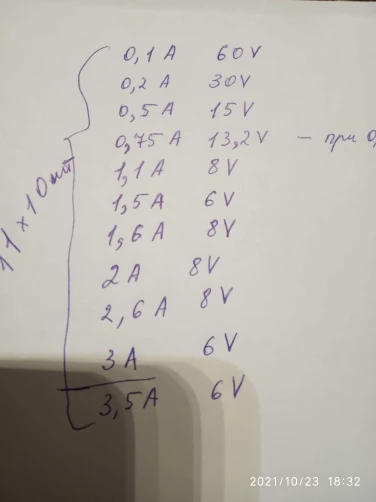 0,1 A 60 V
0,2 A 30 V
0,5 A 15 V
0,75 A 13,2 V — при 0,
1,1 A 8 V
1,5 A 6 V
1,6 A 8 V
2 A 8 V
2,6 A 8 V
3 A 6 V
3,5 A 6 V
11 × 10 шт
2021/10/23 18:32